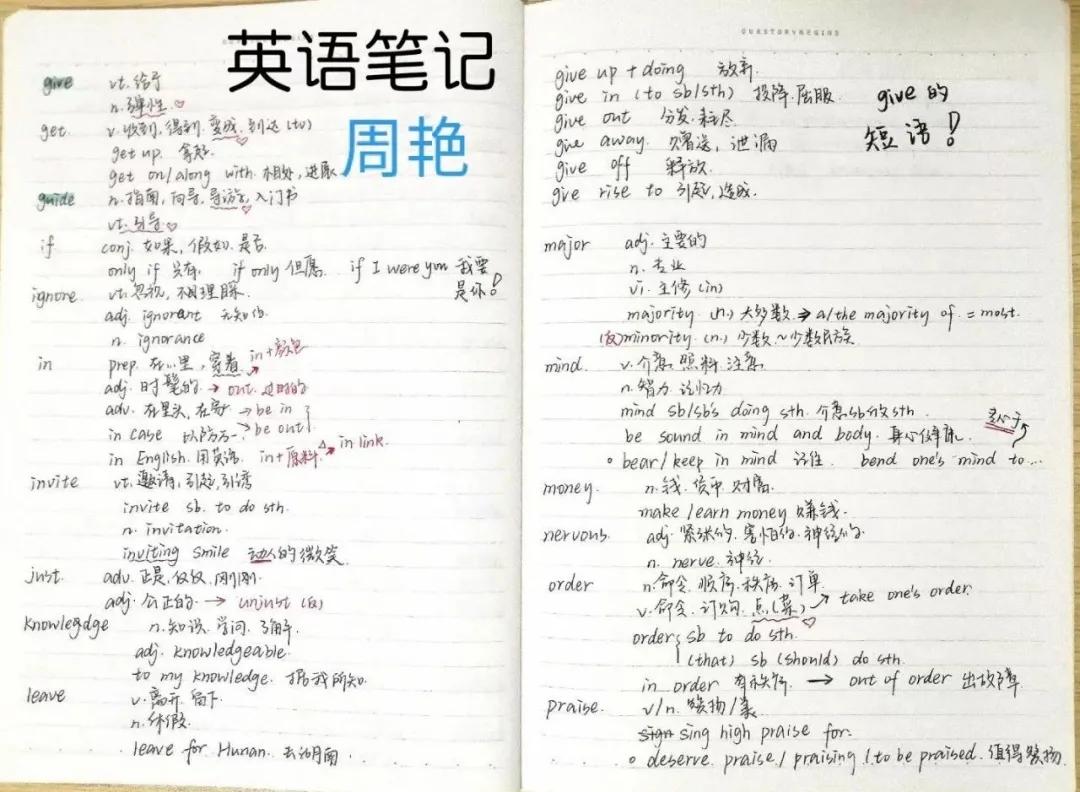 英语笔记
周艳
give vt. 给予
n. 弹性
get v. 收到, 得到, 变成, 到达 (to)
get up 拿起
get on/along with 相处, 进展
guide n. 指南, 向导, 导游, 入门书
vt. 引导
if conj. 如果, 假如, 是否
only if 只有 if only 但愿 if I were you 我要是你!
ignore vt. 忽视, 不理睬
adj. ignorant 无知的
n. ignorance
in prep. 在…里, 穿着 in+颜色
adj. 时髦的 → out 过时的
adv. 在里头, 在家 → be in
in case 以防万一 → be out
in English 用英语 in+原料 → in link.
invite vt. 邀请, 引起, 引诱
invite sb. to do sth.
n. invitation.
inviting smile 动人的微笑
just. adv. 正是, 仅仅, 刚刚.
adj. 公正的 → unjust (反)
knowlegdge n. 知识. 学问. 了解.
adj. knowledgeable.
to my knowledge. 据我所知.
leave v. 离开. 留下.
n. 休假.
leave for Hunan. 去湖南.
QUESTORYNEGIND
give up + doing 放弃.
give in (to sb/sth) 投降. 屈服
give out 分发. 耗尽
give away. 赠送, 泄漏
give off 释放.
give rise to 引起, 造成.
give 的
短语!
major adj. 主要的
n. 专业
vi. 主修 (in)
majority (n.) 大多数. → a/the majority of. = most.
(反) minority. (n.) 少数. ~少数民族
mind. v. 介意. 照料. 注意
n. 智力. 记忆力
mind sb/sb's doing sth. 介意sb做sth.
be sound in mind and body. 身心健康.
bear/keep in mind 记住. bend one's mind to...
money. n. 钱. 货币. 财富.
make/earn money 赚钱.
nervous. adj. 紧张的. 害怕的. 神经的.
n. nerve. 神经
order n. 命令. 顺序. 秩序. 订单
v. 命令. 订购. 点(菜) → take one's order.
order sb to do sth.
(that) sb (should) do sth.
in order 有秩序. → out of order 出故障
praise. v/n. 赞扬/美
sign sing high praise for.
deserve praise/praising/to be praised. 值得赞扬.